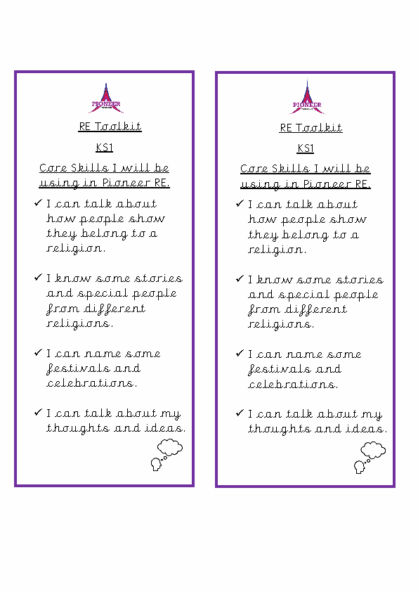 PIONEER
RE Toolkit
KS1
Core Skills I will be
using in Pioneer RE.
✓ I can talk about
how people show
they belong to a
religion.
✓ I know some stories
and special people
from different
religions.
✓ I can name some
festivals and
celebrations.
✓ I can talk about my
thoughts and ideas.
PIONEER
RE Toolkit
KS1
Core Skills I will be
using in Pioneer RE.
✓ I can talk about
how people show
they belong to a
religion.
✓ I know some stories
and special people
from different
religions.
✓ I can name some
festivals and
celebrations.
✓ I can talk about my
thoughts and ideas.